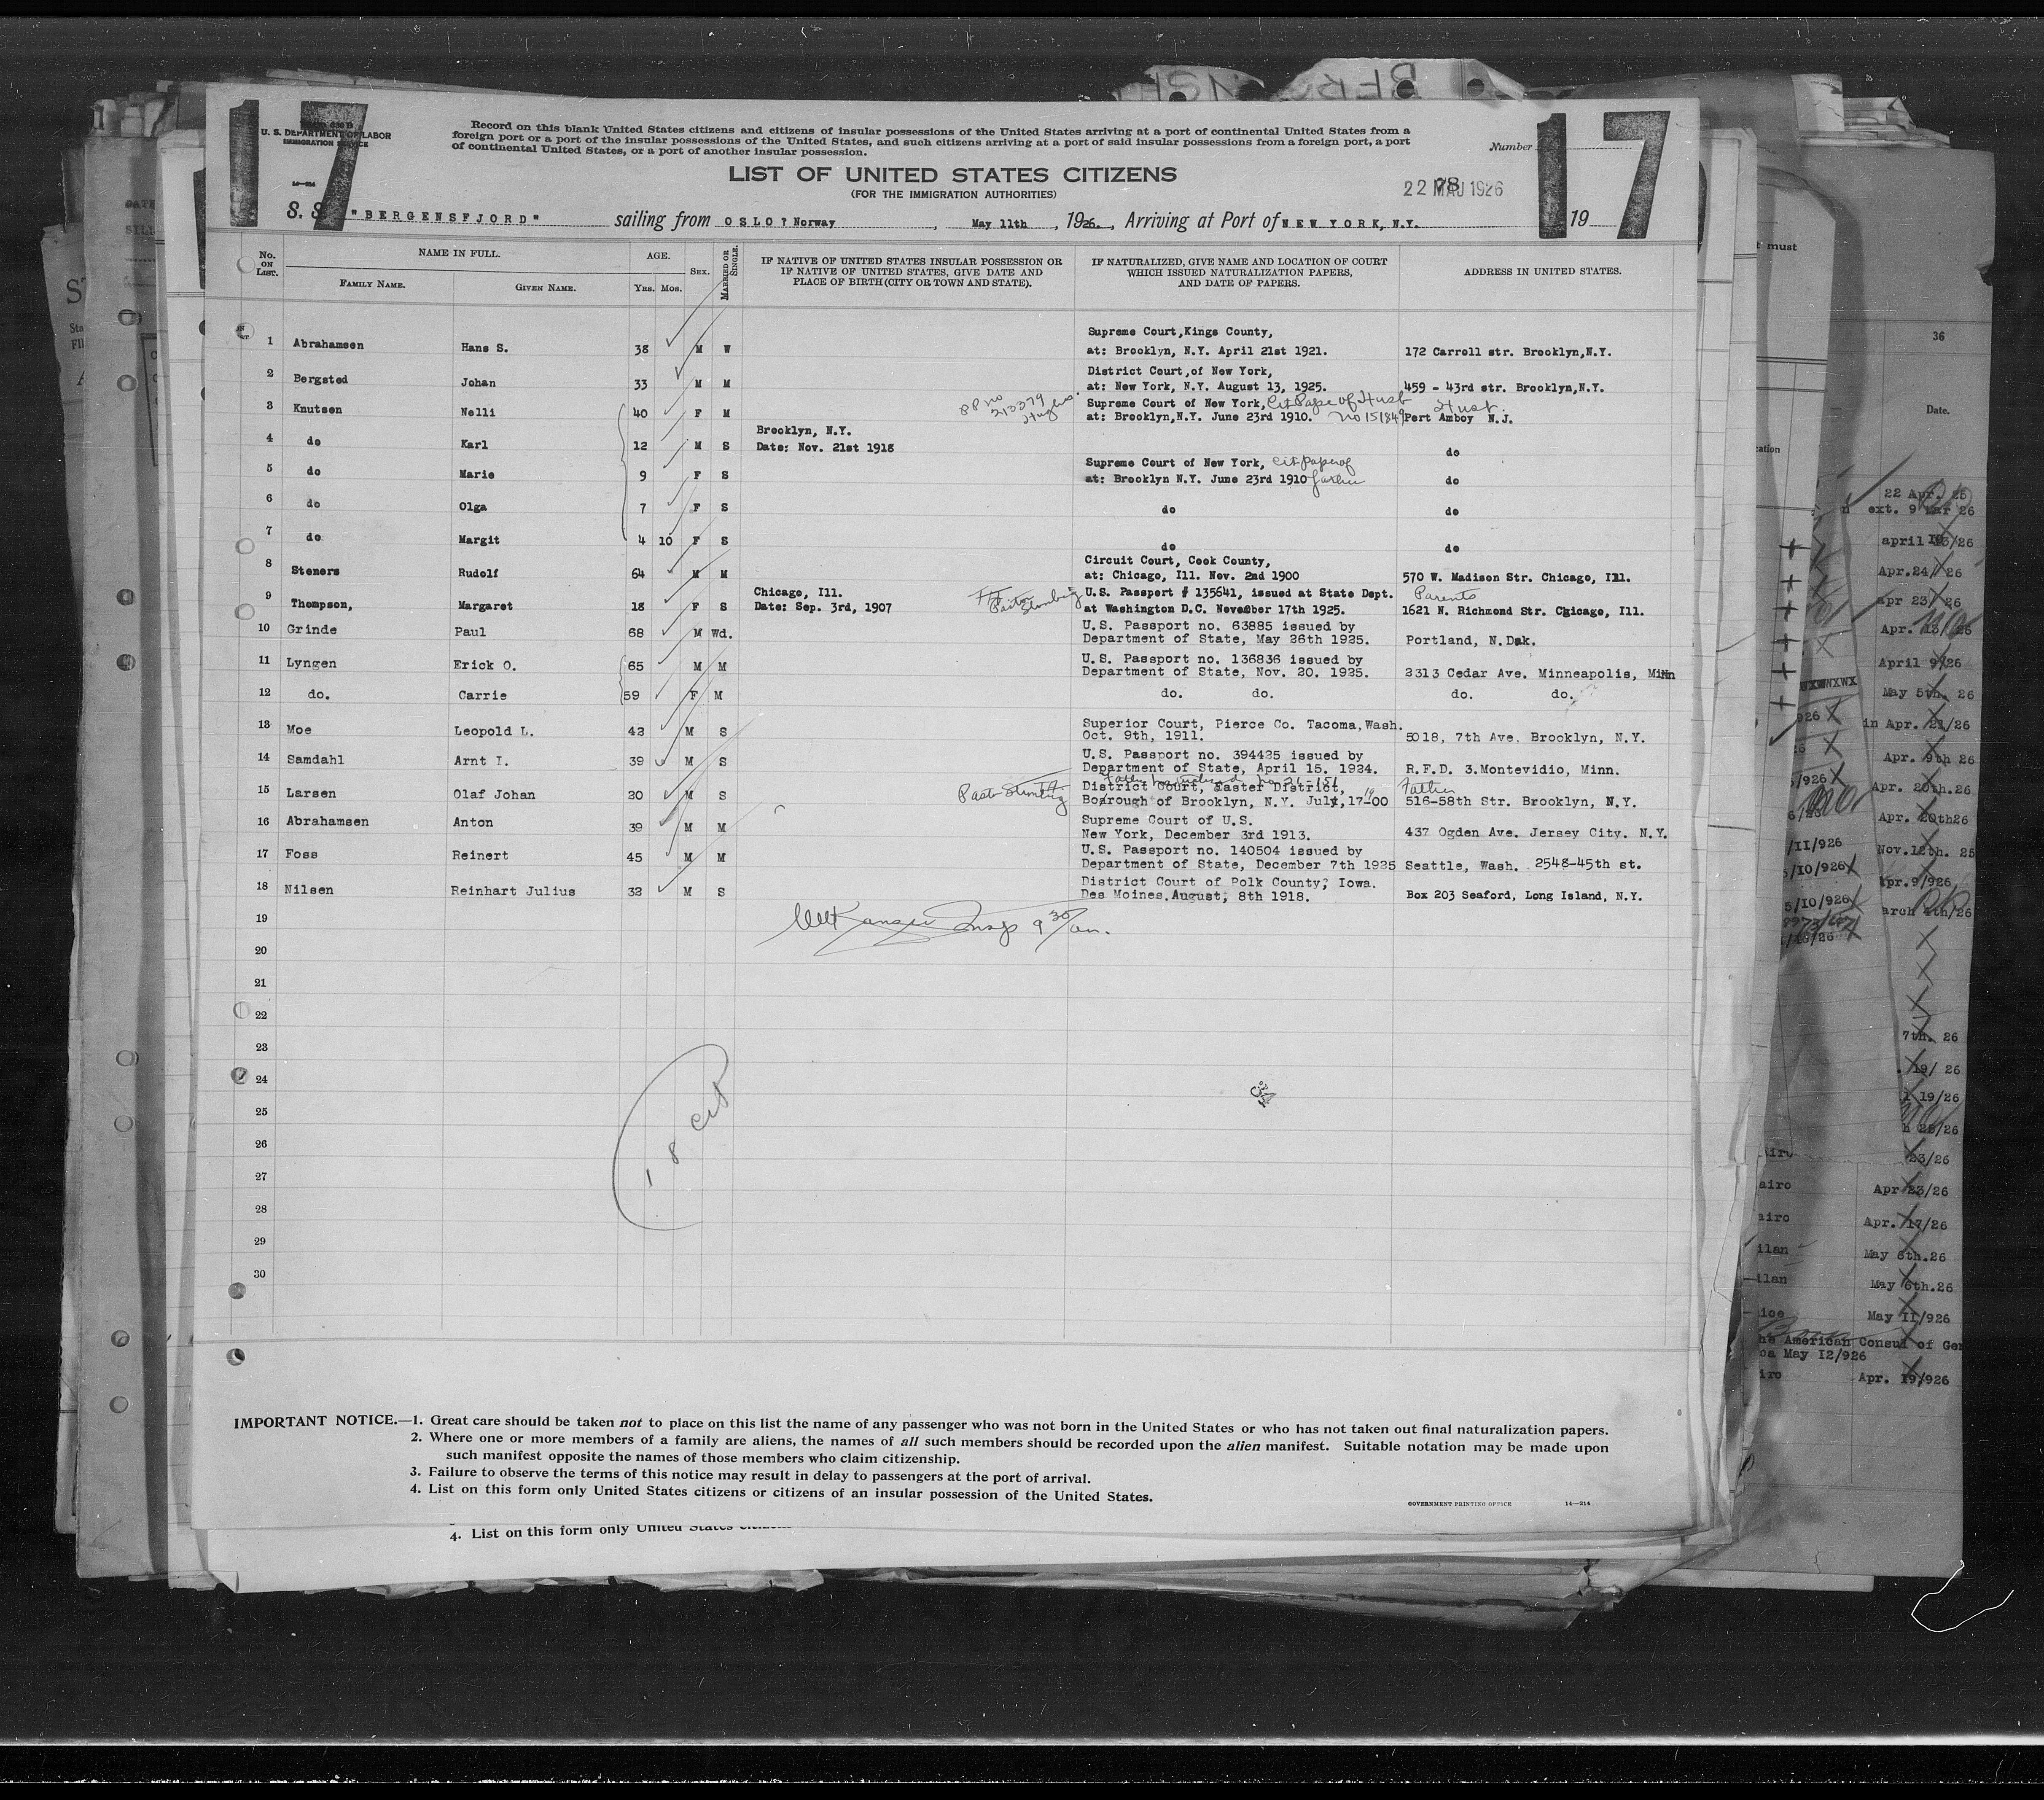 17 17
U. S. DEPARTMENT OF LABOR
IMMIGRATION SERVICE
14—214
Record on this blank United States citizens and citizens of insular possessions of the United States arriving at a port of continental United States from a
foreign port or a port of the insular possessions of the United States, and such citizens arriving at a port of said insular possessions from a foreign port, a port
of continental United States, or a port of another insular possession.
Number
LIST OF UNITED STATES CITIZENS
(FOR THE IMMIGRATION AUTHORITIES)
22 MAJ 1926
S. S. "BERGENSFJORD" sailing from OSLO? Norway, May 11th, 1926., Arriving at Port of NEW YORK, N.Y. 19
No. ON LIST. NAME IN FULL. AGE. SEX. MARRIED OR SINGLE. IF NATIVE OF UNITED STATES INSULAR POSSESSION OR IF NATIVE OF UNITED STATES, GIVE DATE AND PLACE OF BIRTH (CITY OR TOWN AND STATE). IF NATURALIZED, GIVE NAME AND LOCATION OF COURT WHICH ISSUED NATURALIZATION PAPERS, AND DATE OF PAPERS. ADDRESS IN UNITED STATES.
FAMILY NAME. GIVEN NAME. YRS. MOS.
Supreme Court,Kings County,
1 Abrahamsen Hans S. 38 M W at: Brooklyn, N.Y. April 21st 1921. 172 Carroll str. Brooklyn,N.Y.
District Court,of New York,
2 Bergsted Johan 33 M M at: New York, N.Y. August 13, 1925. 459 - 43rd str. Brooklyn,N.Y.
PP no 213379 Hughes Supreme Court of New York, Cit Pape of Husb Husb.
3 Knutsen Nelli 40 F M at: Brooklyn,N.Y. June 23rd 1910. no 151849 Pert Amboy N.J.
Brooklyn, N.Y.
4 do Karl 12 M S Date: Nov. 21st 1918 do
Supreme Court of New York, Cit paper of
5 do Marie 9 F S at: Brooklyn N.Y. June 23rd 1910 father do
6 do Olga 7 F S do do
7 do Margit 4 10 F S do do
Circuit Court, Cook County,
8 Steners Rudolf 64 M M at: Chicago, Ill. Nov. 2nd 1900 570 W. Madison Str. Chicago, Ill.
Chicago, Ill. U.S. Passport # 135641, issued at State Dept. Parents
9 Thompson, Margaret 18 F S Date: Sep. 3rd, 1907 at Washington D.C. November 17th 1925. 1621 N. Richmond Str. Chicago, Ill.
U.S. Passport no. 63885 issued by
10 Grinde Paul 68 M Wd. Department of State, May 26th 1925. Portland, N.Dak.
U.S. Passport no. 136836 issued by
11 Lyngen Erick O. 65 M M Department of State, Nov. 20. 1925. 2313 Cedar Ave. Minneapolis, Minn
12 do. Carrie 59 F M do. do. do. do.
Superior Court, Pierce Co. Tacoma,Wash.
13 Moe Leopold L. 42 M S Oct. 9th, 1911. 5018, 7th Ave. Brooklyn, N.Y.
U.S. Passport no. 394425 issued by
14 Samdahl Arnt I. 39 M S Department of State, April 15. 1924. R.F.D. 3.Montevidio, Minn.
District Court, Easter District, Father
15 Larsen Olaf Johan 20 M S Boarough of Brooklyn, N.Y. July,17-1900 516-58th Str. Brooklyn, N.Y.
Supreme Court of U.S.
16 Abrahamsen Anton 39 M M New York, December 3rd 1913. 437 Ogden Ave. Jersey City. N.Y.
U.S. Passport no. 140504 issued by
17 Foss Reinert 45 M M Department of State, December 7th 1925 Seattle, Wash. 2548-45th st.
District Court of Polk County, Iowa.
18 Nilsen Reinhart Julius 32 M S Des Moines.August, 8th 1918. Box 203 Seaford, Long Island, N.Y.
19
9 30/am.
20
21
22
23
24
25
26
27
28
29
30
18 cit
34
IMPORTANT NOTICE.—1. Great care should be taken not to place on this list the name of any passenger who was not born in the United States or who has not taken out final naturalization papers.
2. Where one or more members of a family are aliens, the names of all such members should be recorded upon the alien manifest. Suitable notation may be made upon
such manifest opposite the names of those members who claim citizenship.
3. Failure to observe the terms of this notice may result in delay to passengers at the port of arrival.
4. List on this form only United States citizens or citizens of an insular possession of the United States.
GOVERNMENT PRINTING OFFICE 14—214
4. List on this form only United States
must
36
Date.
22 Apr. 25
ext. 9 Mar 26
april 16/26
Apr.24/ 26
apr 23/ 26
Apr. 13/ 26
April 9/26
May 5th. 26
in Apr. 21/26
Apr. 9th 26
Apr. 20th.26
Apr. 20th26
Nov.12th. 25
Apr.9/926
arch 4th/26
7th. 26
19/ 26
19/26
23/26
Apr 23/26
Apr. 17/26
May 6th.26
May 6th.26
May 11/926
American Consul of Gen
May 12/926
Apr. 19/926